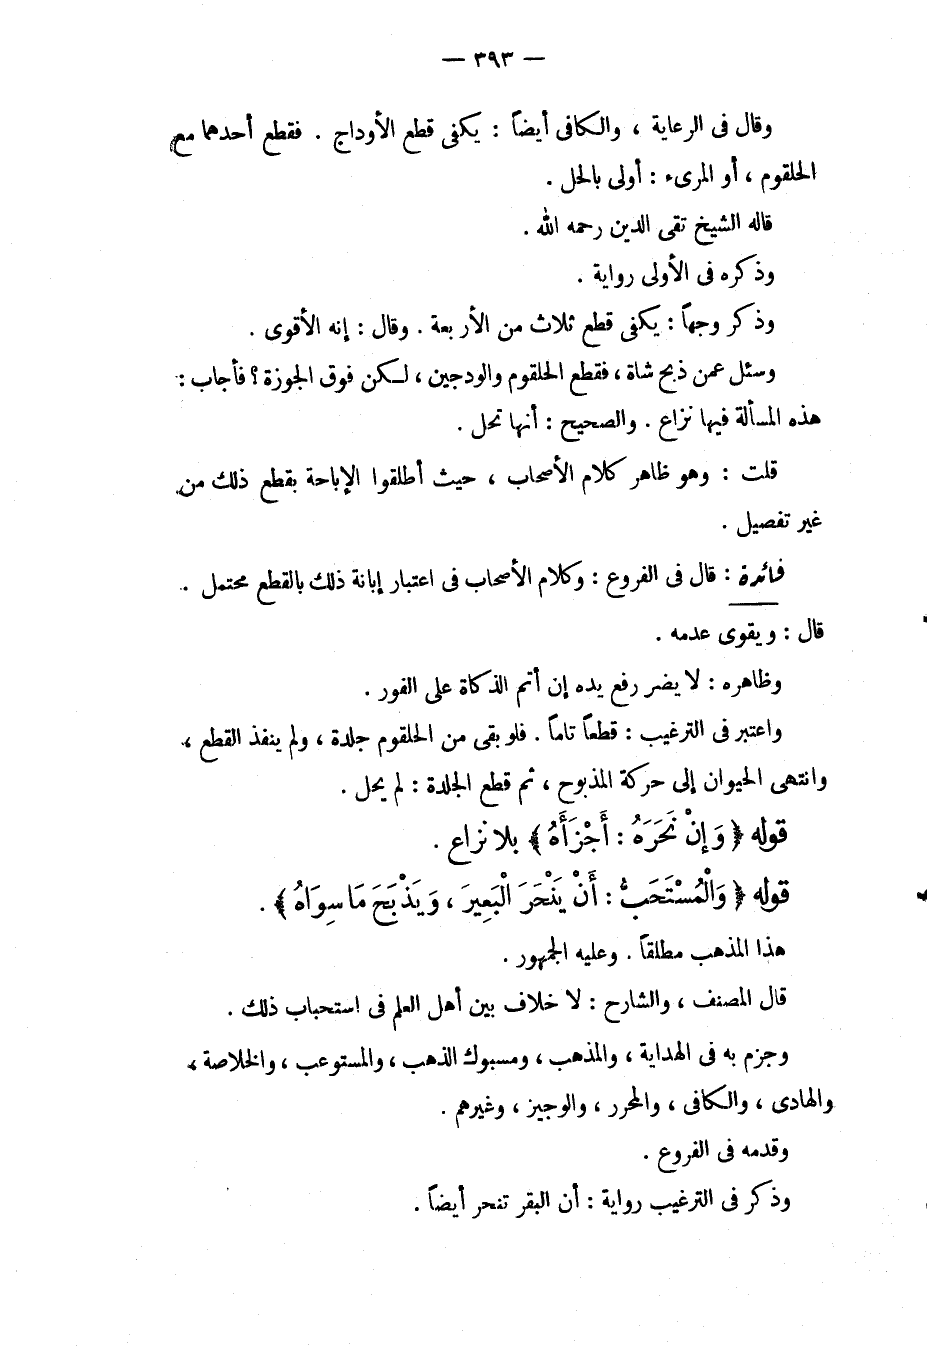 — ٣٩٣ —
وقال فى الرعاية ، والكافى أيضاً : يكفى قطع الأوداج . فقطع أحدهما مع
الحلقوم ، أو المرىء : أولى بالحل .
قاله الشيخ تقى الدين رحمه الله .
وذكره فى الأولى رواية .
وذكر وجهاً : يكفى قطع ثلاث من الأربعة . وقال : إنه الأقوى .
وسئل عمن ذبح شاة ، فقطع الحلقوم والودجين ، لكن فوق الجوزة ؟ فأجاب :
هذه المسألة فيها نزاع . والصحيح : أنها تحل .
قلت : وهو ظاهر كلام الأصحاب ، حيث أطلقوا الإباحة بقطع ذلك من
غير تفصيل .
فائدة : قال فى الفروع : وكلام الأصحاب فى اعتبار إبانة ذلك بالقطع محتمل .
قال : ويقوى عدمه .
وظاهره : لا يضر رفع يده إن أتم الذكاة على الفور .
واعتبر فى الترغيب : قطعاً تاماً . فلو بقى من الحلقوم جلدة ، ولم ينفذ القطع ،
وانتهى الحيوان إلى حركة المذبوح ، ثم قطع الجلدة : لم يحل .
قوله ﴿ وَإِنْ نَحَرَهُ : أَجْزَأَهُ ﴾ بلا نزاع .
قوله ﴿ وَالْمُسْتَحَبُّ : أَنْ يَنْحَرَ الْبَعِيرَ ، وَيَذْبَحَ مَا سِوَاهُ ﴾ .
هذا المذهب مطلقاً . وعليه الجمهور .
قال المصنف ، والشارح : لا خلاف بين أهل العلم فى استحباب ذلك .
وجزم به فى الهداية ، والمذهب ، ومسبوك الذهب ، والمستوعب ، والخلاصة ،
والهادى ، والكافى ، والمحرر ، والوجيز ، وغيرهم .
وقدمه فى الفروع .
وذكر فى الترغيب رواية : أن البقر تنحر أيضاً .